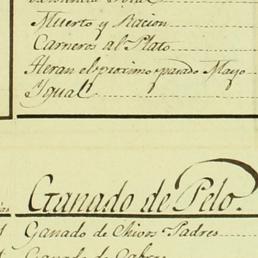 Muerto y Racion
Carneros al Plato
Yeran el proximo pasado Mayo
Ygual
Ganado de Pelo.
Ganado de Chivos Padres
Ganado de Cabras